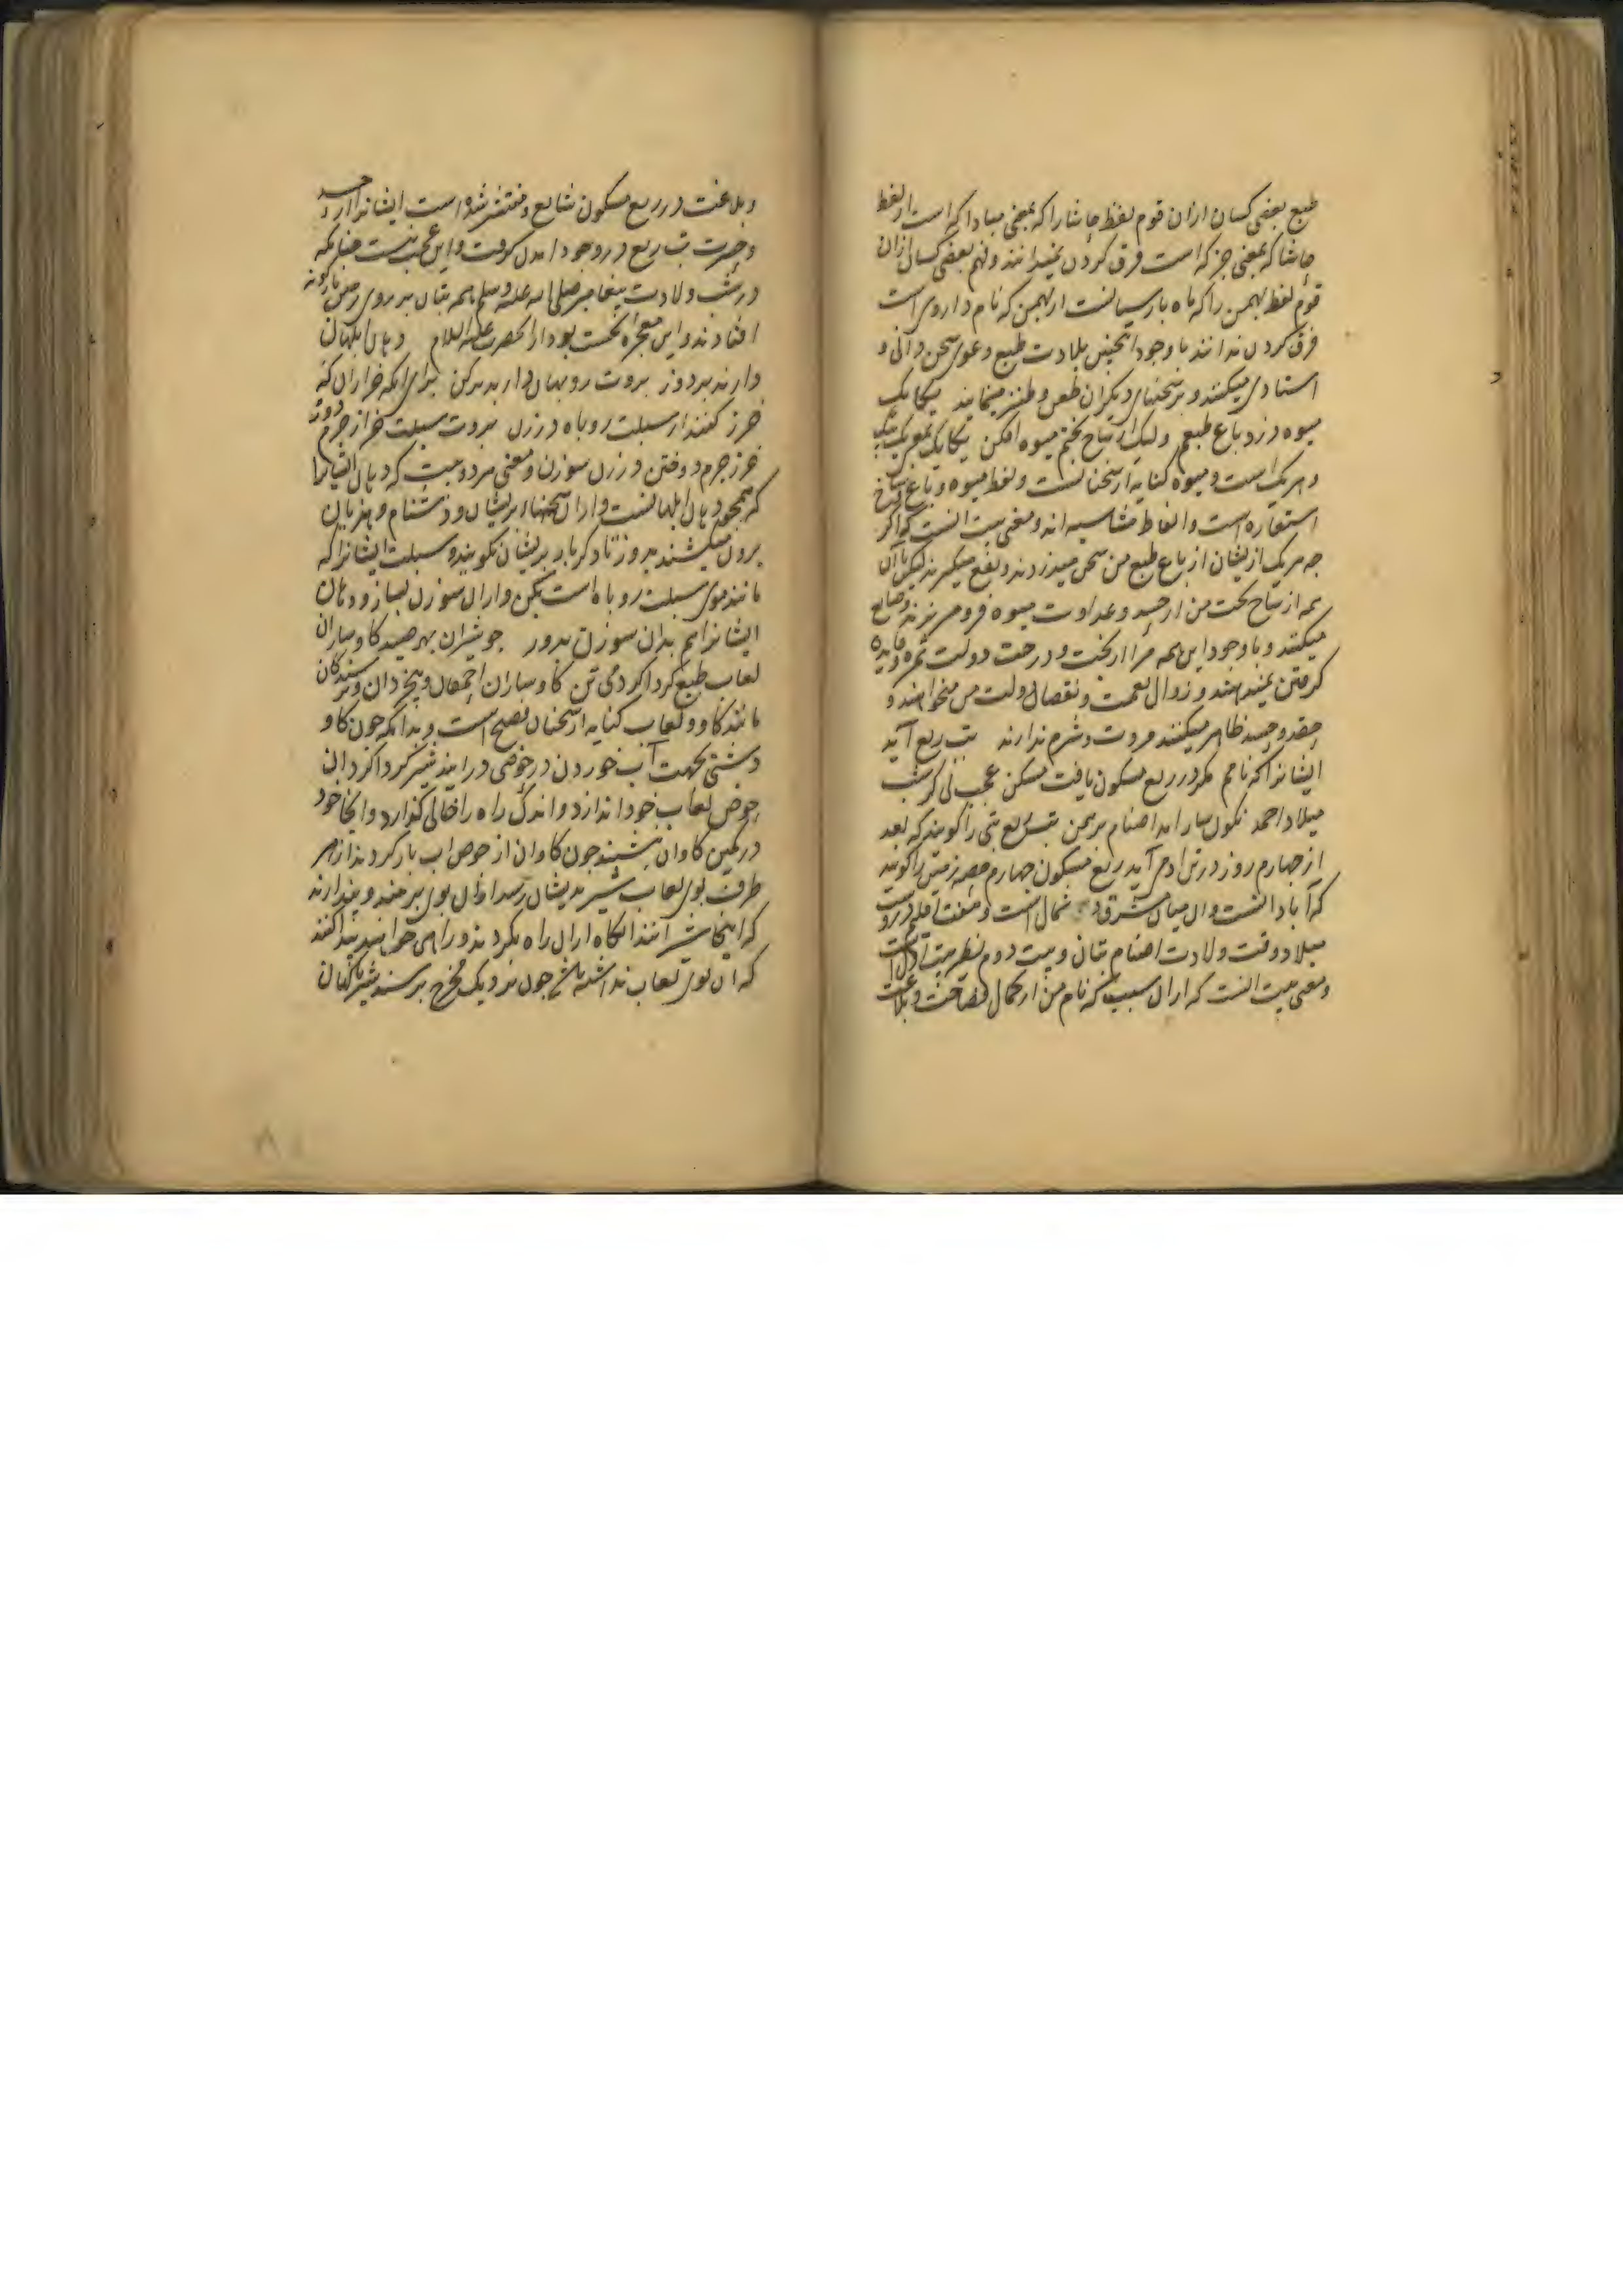 طبع بعضی کسان ازان قوم لفظ حاشا را که بمعنی مبادا که است از لفظ
حاشا که بمعنی جز که است فرق کردن نمیدانند و فهم بعضی کسان ازان
قوم لفظ بهمن را که ماه پارسیانست از بهمن که نام داروی است
فرق کردن ندانند با وجود اینچنین بلادت طبع دعوی سخن دانی و
استادی میکنند و بر سخنهای دیگران طعن و طنز مینمایند یکایک
میوه دزد باغ طبعم ولیک از شاخ بختم میوه افکن یکایک بمعنی یک بیک
و هر یک است و میوه کنایه از سخنانست و لفظ میوه و باغ و شاخ
استعاره است و الفاظ متناسبه اند و معنی بیت آنست که اگر
چه هر یک ازیشان از باغ طبع من سخن میدزدند و نفع میگیرند لیکن با آن
همه از شاخ بخت من از حسد و عداوت میوه فرو میریزند و ضایع
میکنند و با وجود این همه مرا از بخت و درخت دولت ثمره و فایده
گرفتن نمیدهند و زوال نعمت و نقصان دولت من میخواهند و
حقد و حسد ظاهر میکنند مروت و شرم ندارند تب ربع آمد
ایشانرا که نامم در ربع مسکون یافت مسکن عجب نی گر شب
میلاد احمد نگون سار آمد اصنام برهمن تب ربع تبی را گویند که بعد
از چهارم روز در تن آدمی آید ربع مسکون چهارم حصه زمین را گویند
که آبادانست و آن میان مشرق و شمال است و هفت اقلیم دروست
میلاد وقت ولادت اصنام بتان و بیت دوم نظیر بیت اول است
و معنی بیت آنست که ازان سبب که نام من از کمال فصاحت و بلاغت
و بلاغت در ربع مسکون شایع و منتشر شده است ایشانرا از حسد
و حسرت تب ربع در وجود آمدن گرفت و این عجب نیست چنانکه
در شب ولادت پیغامبر صلی الله علیه وسلم همه بتان بر روی زمین باژگونه
افتادند و این معجزه نخست بود از آنحضرت علیه السلام دهان ابلهان
دارند بر دوز بروت روبهان دارند برکن برای آنکه خرازان که
خرز کنند از سبلت روباه درزن بروت سبلت خراز چرم دوز
خرز چرم دوختن درزن سوزن و معنی هر دو بیت که دهان ایشانرا
که همچو دهان ابلهانست و ازان سخنهاء پریشان و دشنام و هذیان
برون میکشند بدوز تا دگر بار پریشان نگویند و سبلت ایشانرا که
مانند موی سبلت روباه است بکن و ازان سوزن بساز و دهان
ایشانرا هم بدان سوزن بدوز چو شیران بهر صید گاو ساران
لعاب طبع گرداگرد می تن گاو ساران احمقان و بیخردان و ترسندگان
مانند گاو و لعاب کنایه از سخنان فصیح است و بدانکه چون گاو
دشتی بجهت آب خوردن در حوضی درآیند شیر گرداگرد آن
حوض لعاب خود اندازد و اندک راه را خالی گذارد و آنجا خود
در کمین گاوان نشیند چون گاوان از حوض آب باز گردند از هر
طرف بوی لعاب شیر بدیشان رسد ازان بوی برمند و پندارند
که اینجا شیر است آنگاه ازان راه بگردند و راهی خواهند پیدا کنند
که آن بوی لعاب نداشته باشد چون نزدیک مخرج برسند شیر ناگهان